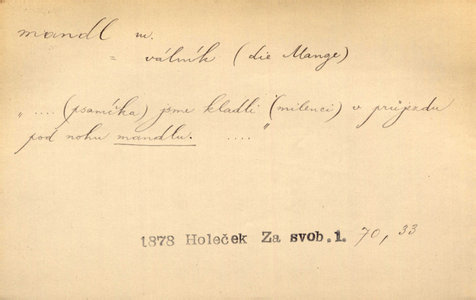 mandl m.
= válník (die Mange)
„ .... (psaníčka) jsme kladli (milenci) v průjezdu
pod nohu mandlu. .... "
1878 Holeček Za svob. 1. 70, 33